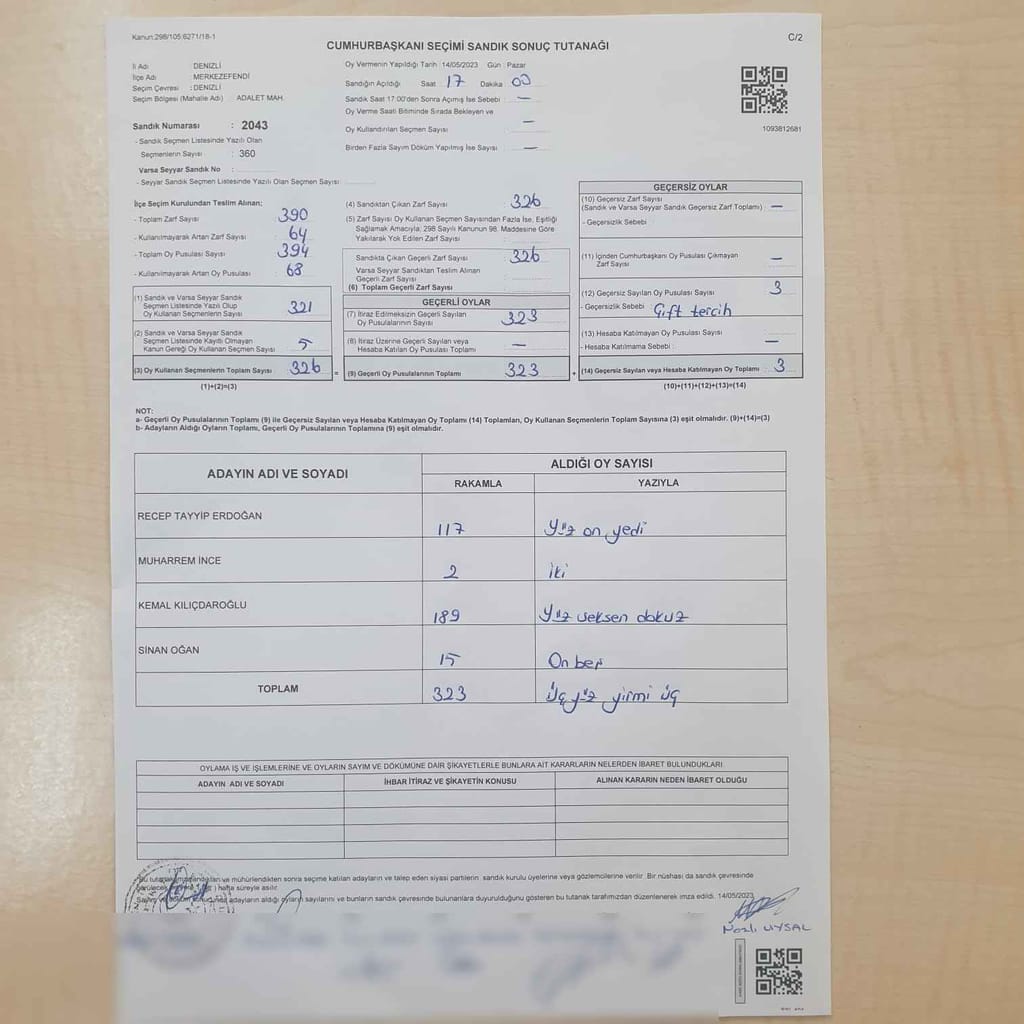 Kanun:298/105;6271/18-1
C/2
CUMHURBAŞKANI SEÇİMİ SANDIK SONUÇ TUTANAĞI
İl Adı : DENİZLİ
İlçe Adı : MERKEZEFENDİ
Seçim Çevresi : DENİZLİ
Seçim Bölgesi (Mahalle Adı) : ADALET MAH.
Sandık Numarası : 2043
- Sandık Seçmen Listesinde Yazılı Olan
Seçmenlerin Sayısı : 360
Varsa Seyyar Sandık No :
- Seyyar Sandık Seçmen Listesinde Yazılı Olan Seçmen Sayısı :
Oy Vermenin Yapıldığı Tarih :14/05/2023 Gün : Pazar
Sandığın Açıldığı Saat 17 Dakika 00
Sandık Saat 17.00'den Sonra Açmış İse Sebebi : —
Oy Verme Saati Bitiminde Sırada Bekleyen ve
Oy Kullandırılan Seçmen Sayısı : —
Birden Fazla Sayım Döküm Yapılmış İse Sayısı : —
1093812681
İlçe Seçim Kurulundan Teslim Alınan;
- Toplam Zarf Sayısı : 390
- Kullanılmayarak Artan Zarf Sayısı : 64
- Toplam Oy Pusulası Sayısı : 394
- Kullanılmayarak Artan Oy Pusulası : 68
(1) Sandık ve Varsa Seyyar Sandık
Seçmen Listesinde Yazılı Olup
Oy Kullanan Seçmenlerin Sayısı : 321
(2) Sandık ve Varsa Seyyar Sandık
Seçmen Listesinde Kayıtlı Olmayan
Kanun Gereği Oy Kullanan Seçmen Sayısı : 5
(3) Oy Kullanan Seçmenlerin Toplam Sayısı : 326
(1)+(2)=(3)
(4) Sandıktan Çıkan Zarf Sayısı : 326
(5) Zarf Sayısı Oy Kullanan Seçmen Sayısından Fazla İse, Eşitliği
Sağlamak Amacıyla; 298 Sayılı Kanunun 98. Maddesine Göre
Yakılarak Yok Edilen Zarf Sayısı :
Sandıkta Çıkan Geçerli Zarf Sayısı : 326
Varsa Seyyar Sandıktan Teslim Alınan
Geçerli Zarf Sayısı :
(6) Toplam Geçerli Zarf Sayısı :
GEÇERLİ OYLAR
(7) İtiraz Edilmeksizin Geçerli Sayılan
Oy Pusulalarının Sayısı : 323
(8) İtiraz Üzerine Geçerli Sayılan veya
Hesaba Katılan Oy Pusulası Toplamı : —
= (9) Geçerli Oy Pusulalarının Toplamı : 323
GEÇERSİZ OYLAR
(10) Geçersiz Zarf Sayısı
(Sandık ve Varsa Seyyar Sandık Geçersiz Zarf Toplamı) : —
- Geçersizlik Sebebi :
(11) İçinden Cumhurbaşkanı Oy Pusulası Çıkmayan
Zarf Sayısı : —
(12) Geçersiz Sayılan Oy Pusulası Sayısı : 3
- Geçersizlik Sebebi : Çift tercih
(13) Hesaba Katılmayan Oy Pusulası Sayısı :
- Hesaba Katılmama Sebebi : —
+ (14) Geçersiz Sayılan veya Hesaba Katılmayan Oy Toplamı : 3
(10)+(11)+(12)+(13)=(14)
NOT:
a- Geçerli Oy Pusulalarının Toplamı (9) ile Geçersiz Sayılan veya Hesaba Katılmayan Oy Toplamı (14) Toplamları, Oy Kullanan Seçmenlerin Toplam Sayısına (3) eşit olmalıdır. (9)+(14)=(3)
b- Adayların Aldığı Oyların Toplamı, Geçerli Oy Pusulalarının Toplamına (9) eşit olmalıdır.
ADAYIN ADI VE SOYADI ALDIĞI OY SAYISI
RAKAMLA YAZIYLA
RECEP TAYYİP ERDOĞAN 117 Yüz on yedi
MUHARREM İNCE 2 İki
KEMAL KILIÇDAROĞLU 189 Yüz seksen dokuz
SİNAN OĞAN 15 On beş
TOPLAM 323 Üç yüz yirmi üç
OYLAMA İŞ VE İŞLEMLERİNE VE OYLARIN SAYIM VE DÖKÜMÜNE DAİR ŞİKAYETLERLE BUNLARA AİT KARARLARIN NELERDEN İBARET BULUNDUKLARI
ADAYIN ADI VE SOYADI İHBAR İTİRAZ VE ŞİKAYETİN KONUSU ALINAN KARARIN NEDEN İBARET OLDUĞU
Bu tutanak imzalandıktan ve mühürlendikten sonra seçime katılan adayların ve talep eden siyasi partilerin sandık kurulu üyelerine veya gözlemcilerine verilir. Bir nüshası da sandık çevresinde
görülecek bir yere bir (1) hafta süreyle asılır.
adayların aldığı oyların sayılarını ve bunların sandık çevresinde bulunanlara duyurulduğunu gösteren bu tutanak tarafımızdan düzenlenerek imza edildi. 14/05/2023
Nazlı UYSAL